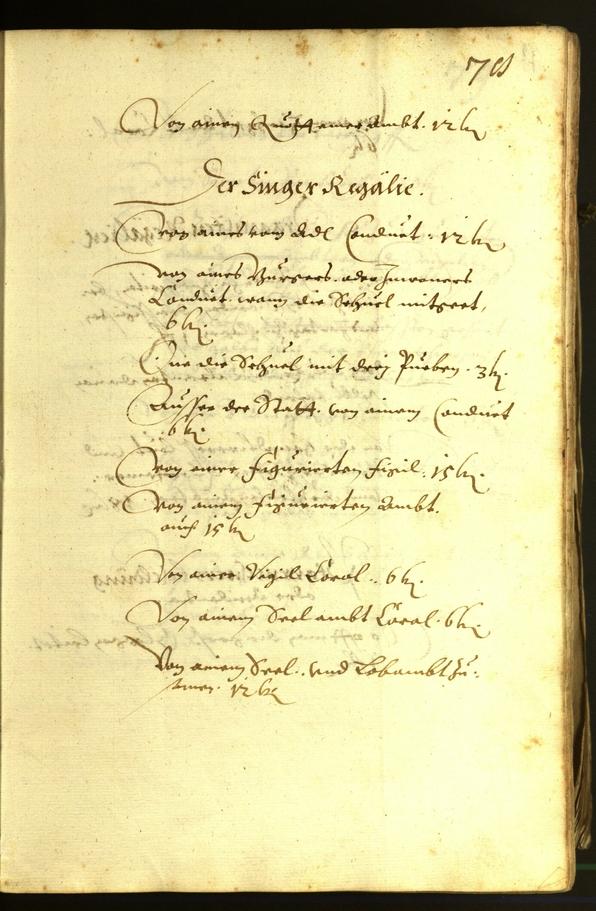 78
Von ainem Ambt. 12 kr
Der Singer Regalie.
Von aines vom Adl Conduct. 12 kr
Von aines Burgers. oder Innwoners
Conduct. wann die Schuel mitgeet,
6 kr.
One die Schuel mit dreÿ Pueben. 3 kr.
Ausser der Statt. von ainem Conduct
6 kr.
Von ainer Figurierten Figil. 15 kr.
Von ainem Figurierten Ambt.
auch 15 kr
Von ainer Vigil Coral. 6 kr.
Von ainem Seel ambt Coral. 6 kr.
Von ainem Seel. und Lobambt zu-
samen. 12 kr